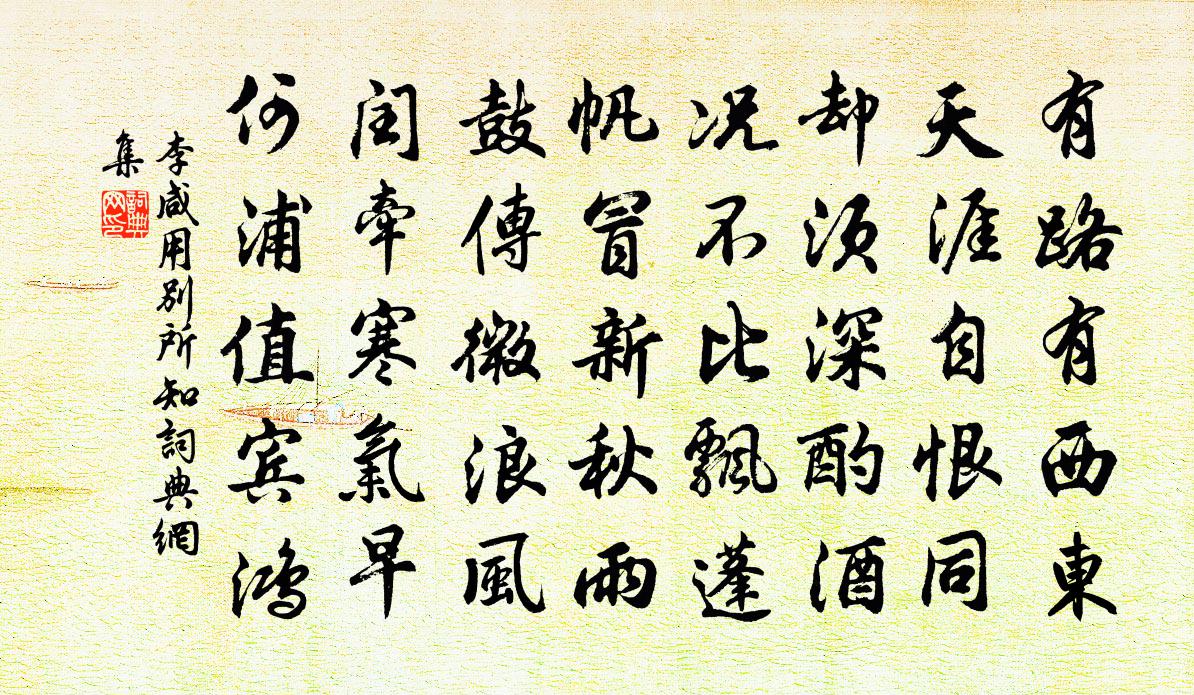 有路有西東
天涯自恨同
却須深酌酒
況不比飄蓬
帆冒新秋雨
鼓傳微浪風
閏牽寒氣早
何浦值宾鴻
李咸用別所知詞典網
集
詞典
网印